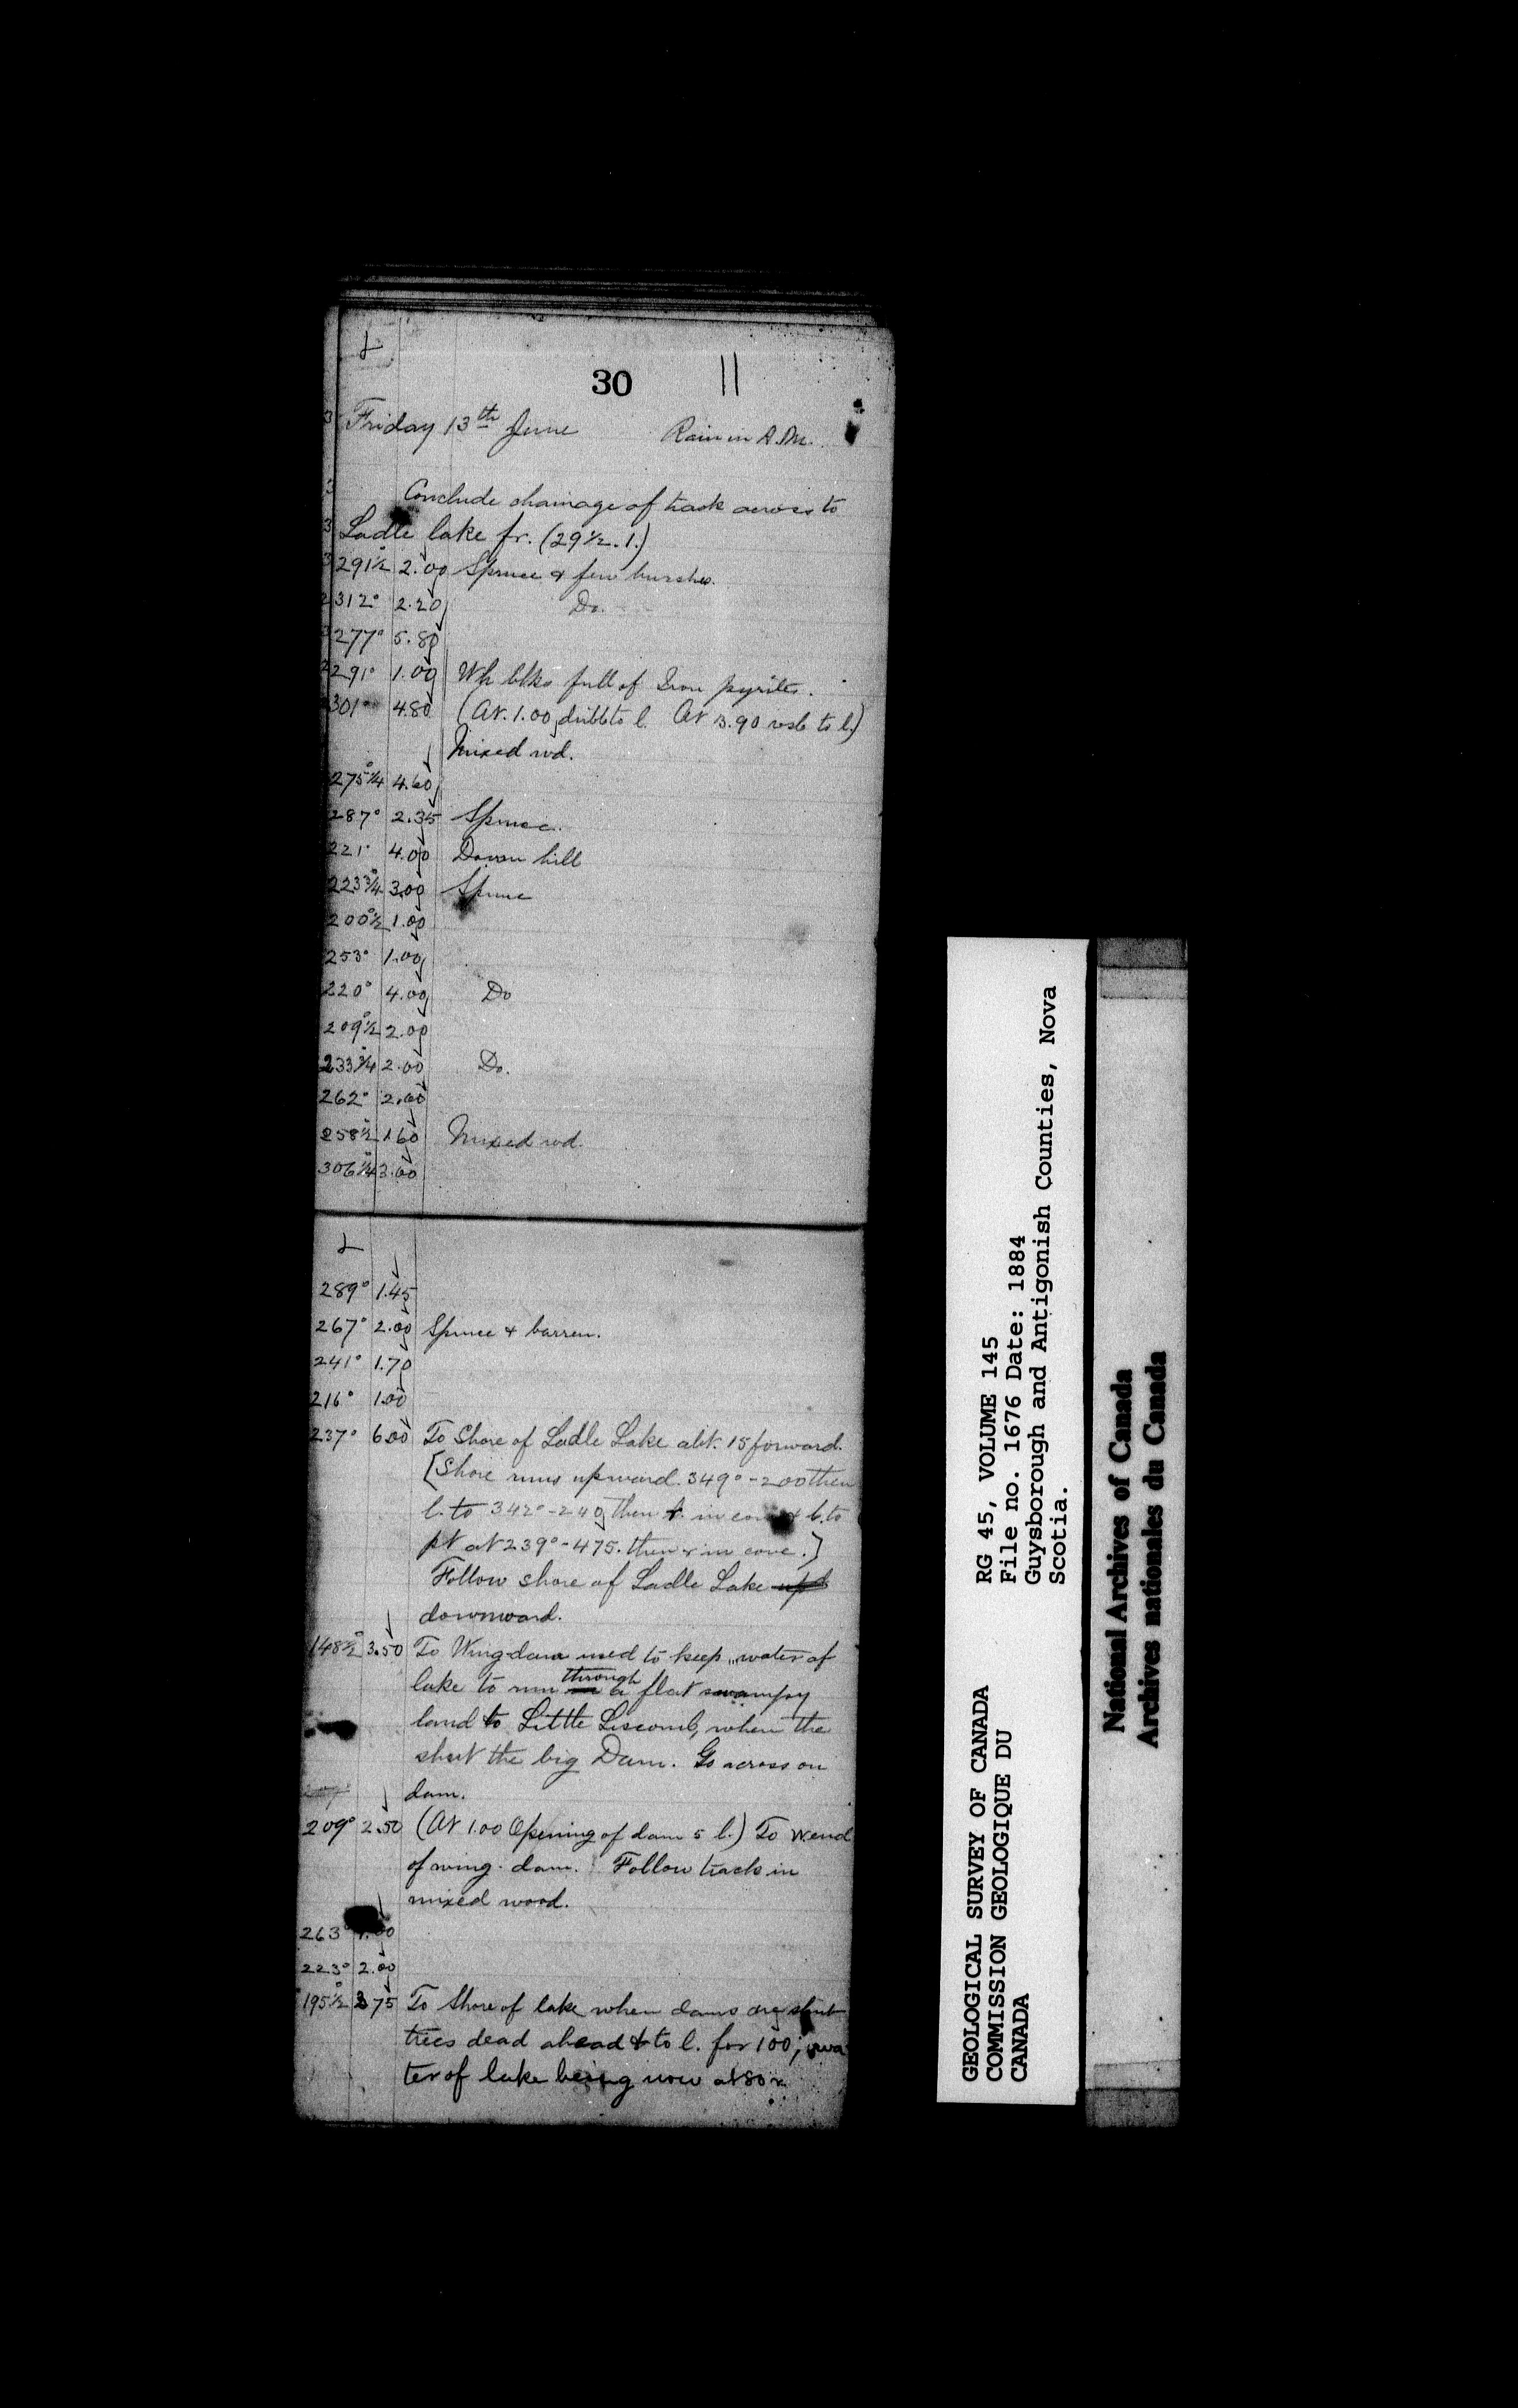 30 11
Friday 13th June Rain in A.M.
Conclude chainage of track across to
Ladle lake fr. (29½. l.)
291½° 2.00 Spruce & few burches.
312° 2.20 Do.
277° 5.80
291° 1.00 Wh blks full of Iron pyrites.
301° 4.80 (At. 1.00 to l. At 3.90 to l.)
Mixed wd.
275¼° 4.60
287° 2.35 Spruce.
221° 4.00 Down hill
223¾° 3.00 Spruce
200½° 1.00
253° 1.00
220° 4.00 Do
209½° 2.00
233¾° 2.00 Do.
262° 2.00
258½° 1.60 Mixed wd.
306¼° 3.00
289° 1.45
267° 2.00 Spruce & barren.
241° 1.70
216° 1.00
237° 6.00 To Shore of Ladle Lake abt. 15 forward.
[Shore runs upward. 349° - 200 then
l. to 342° - 240 then r. in & l. to
pt at 239° - 475. then r in cove.]
Follow shore of Ladle Lake up
downward.
148½° 3.50 To Wing-dam used to keep water of
lake to run through a flat swampy
land to Little Liscomb, when the
shut the big Dam. Go across on
dam.
209° 2.50 (At 1.00 Opening of dam 5 l.) To W. end
of wing-dam. Follow track in
mixed wood.
263° .00
223° 2.00
195½° 3.75 To Shore of lake when dams are shut
trees dead ahead & to l. for 100; wa
ter of lake being now at 80 r.
GEOLOGICAL SURVEY OF CANADA
COMMISSION GEOLOGIQUE DU
CANADA
RG 45, VOLUME 145
File no. 1676 Date: 1884
Guysborough and Antigonish Counties, Nova
Scotia.
National Archives of Canada
Archives nationales du Canada